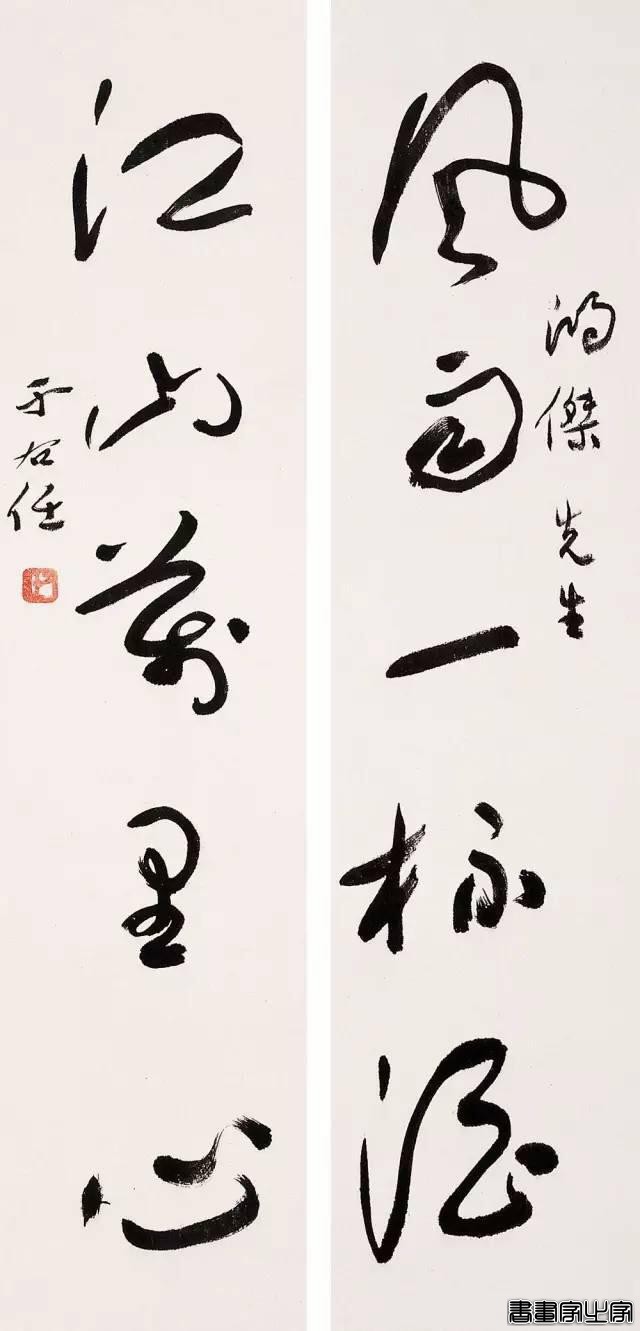 鴻傑先生
風雨一杯酒
江山萬里心
于右任
書畫家必家